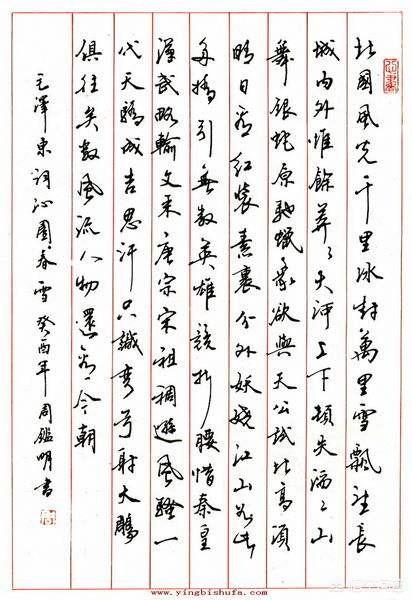 北國風光千里冰封萬里雪飄望長
城内外惟餘莽々大河上下頓失滔々山
舞銀蛇原馳蠟象欲與天公試比高須
晴日看紅裝素裹分外妖嬈江山如此
多嬌引無數英雄競折腰惜秦皇
漢武略輸文采唐宗宋祖稍遜風騷一
代天驕成吉思汗只識彎弓射大鵰
俱往矣數風流人物還看今朝
毛澤東詞沁園春雪癸酉年周鑑明書
www.yingbishufa.com